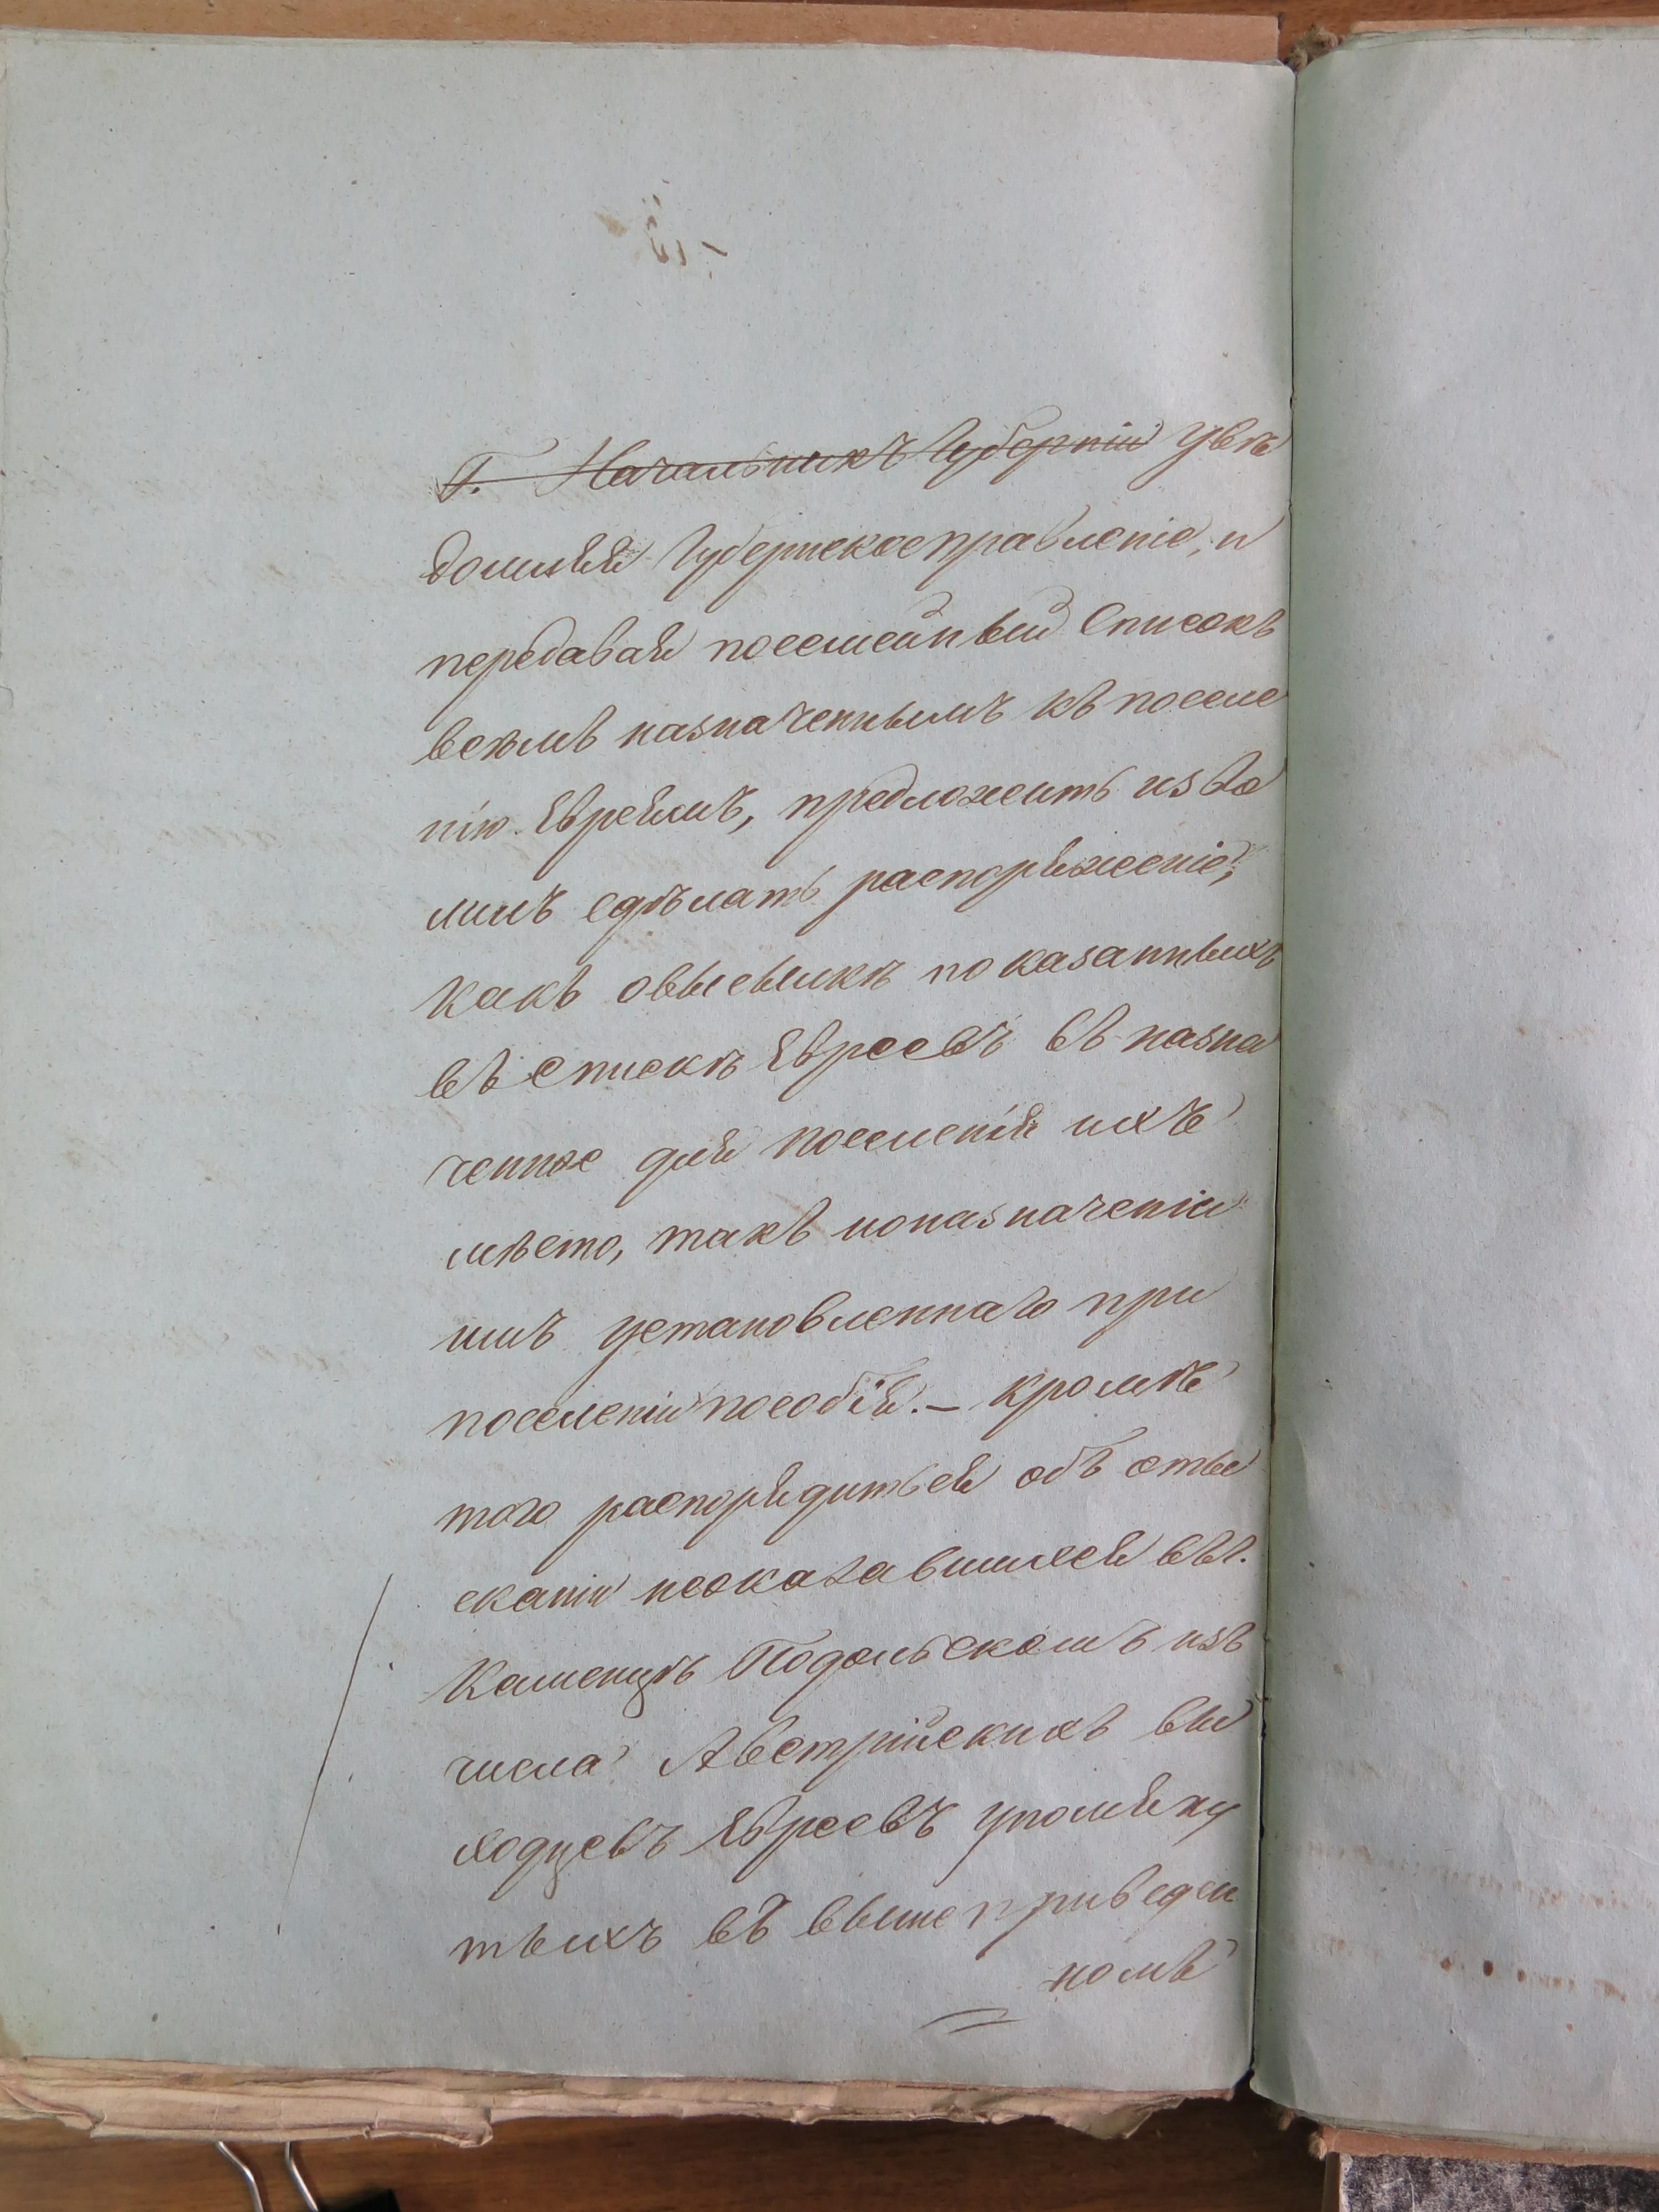 Г. Начальникъ Губерніи увѣ
домляя Губернскоеправленіе, и
передавая посемейный Списокъ
всѣмъ назначеннымъ къ поселе
нію Евреямъ, предложить изво
лилъ сдѣлать распоряженіе,
какъ овысылкѣ показанныхъ
въ Спискѣ Евреевъ въ назна
ченное для поселенія ихъ
мѣсто, такъ ионазначеніи
имъ установленнаго при
поселеніи пособія. — кромѣ
того распорядиться объ оты
сканіи неоказавшихся въ г.
Каменцѣ Подольскомъ изъ
числа Австрійскихъ вы
ходцевъ Евреевъ упомяну
тыхъ въ вышеприведен
номъ